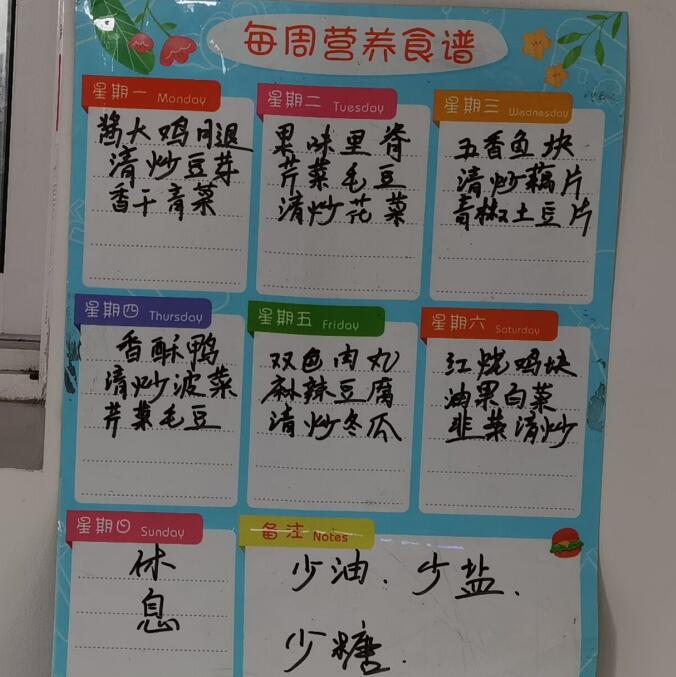 每周营养食谱
星期一 Monday
酱大鸡腿
清炒豆芽
香干青菜
星期二 Tuesday
果味里脊
芹菜毛豆
清炒花菜
星期三 Wednesday
五香鱼块
清炒藕片
青椒土豆片
星期四 Thursday
香酥鸭
清炒菠菜
芹菜毛豆
星期五 Friday
双色肉丸
麻辣豆腐
清炒冬瓜
星期六 Saturday
红烧鸡块
油果白菜
韭菜清炒
星期日 Sunday
休
息
备注 Notes
少油、少盐、
少糖.